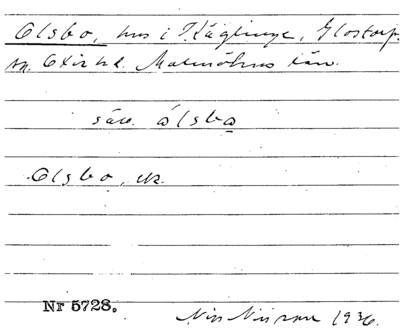 Elsbo, hus i Käglinge, Glostorps
sn. Oxie hd. Malmöhus län.
säv. ælsbo
Elsbo, ek.
Nr 5728.
Nils Nilsson 1936.